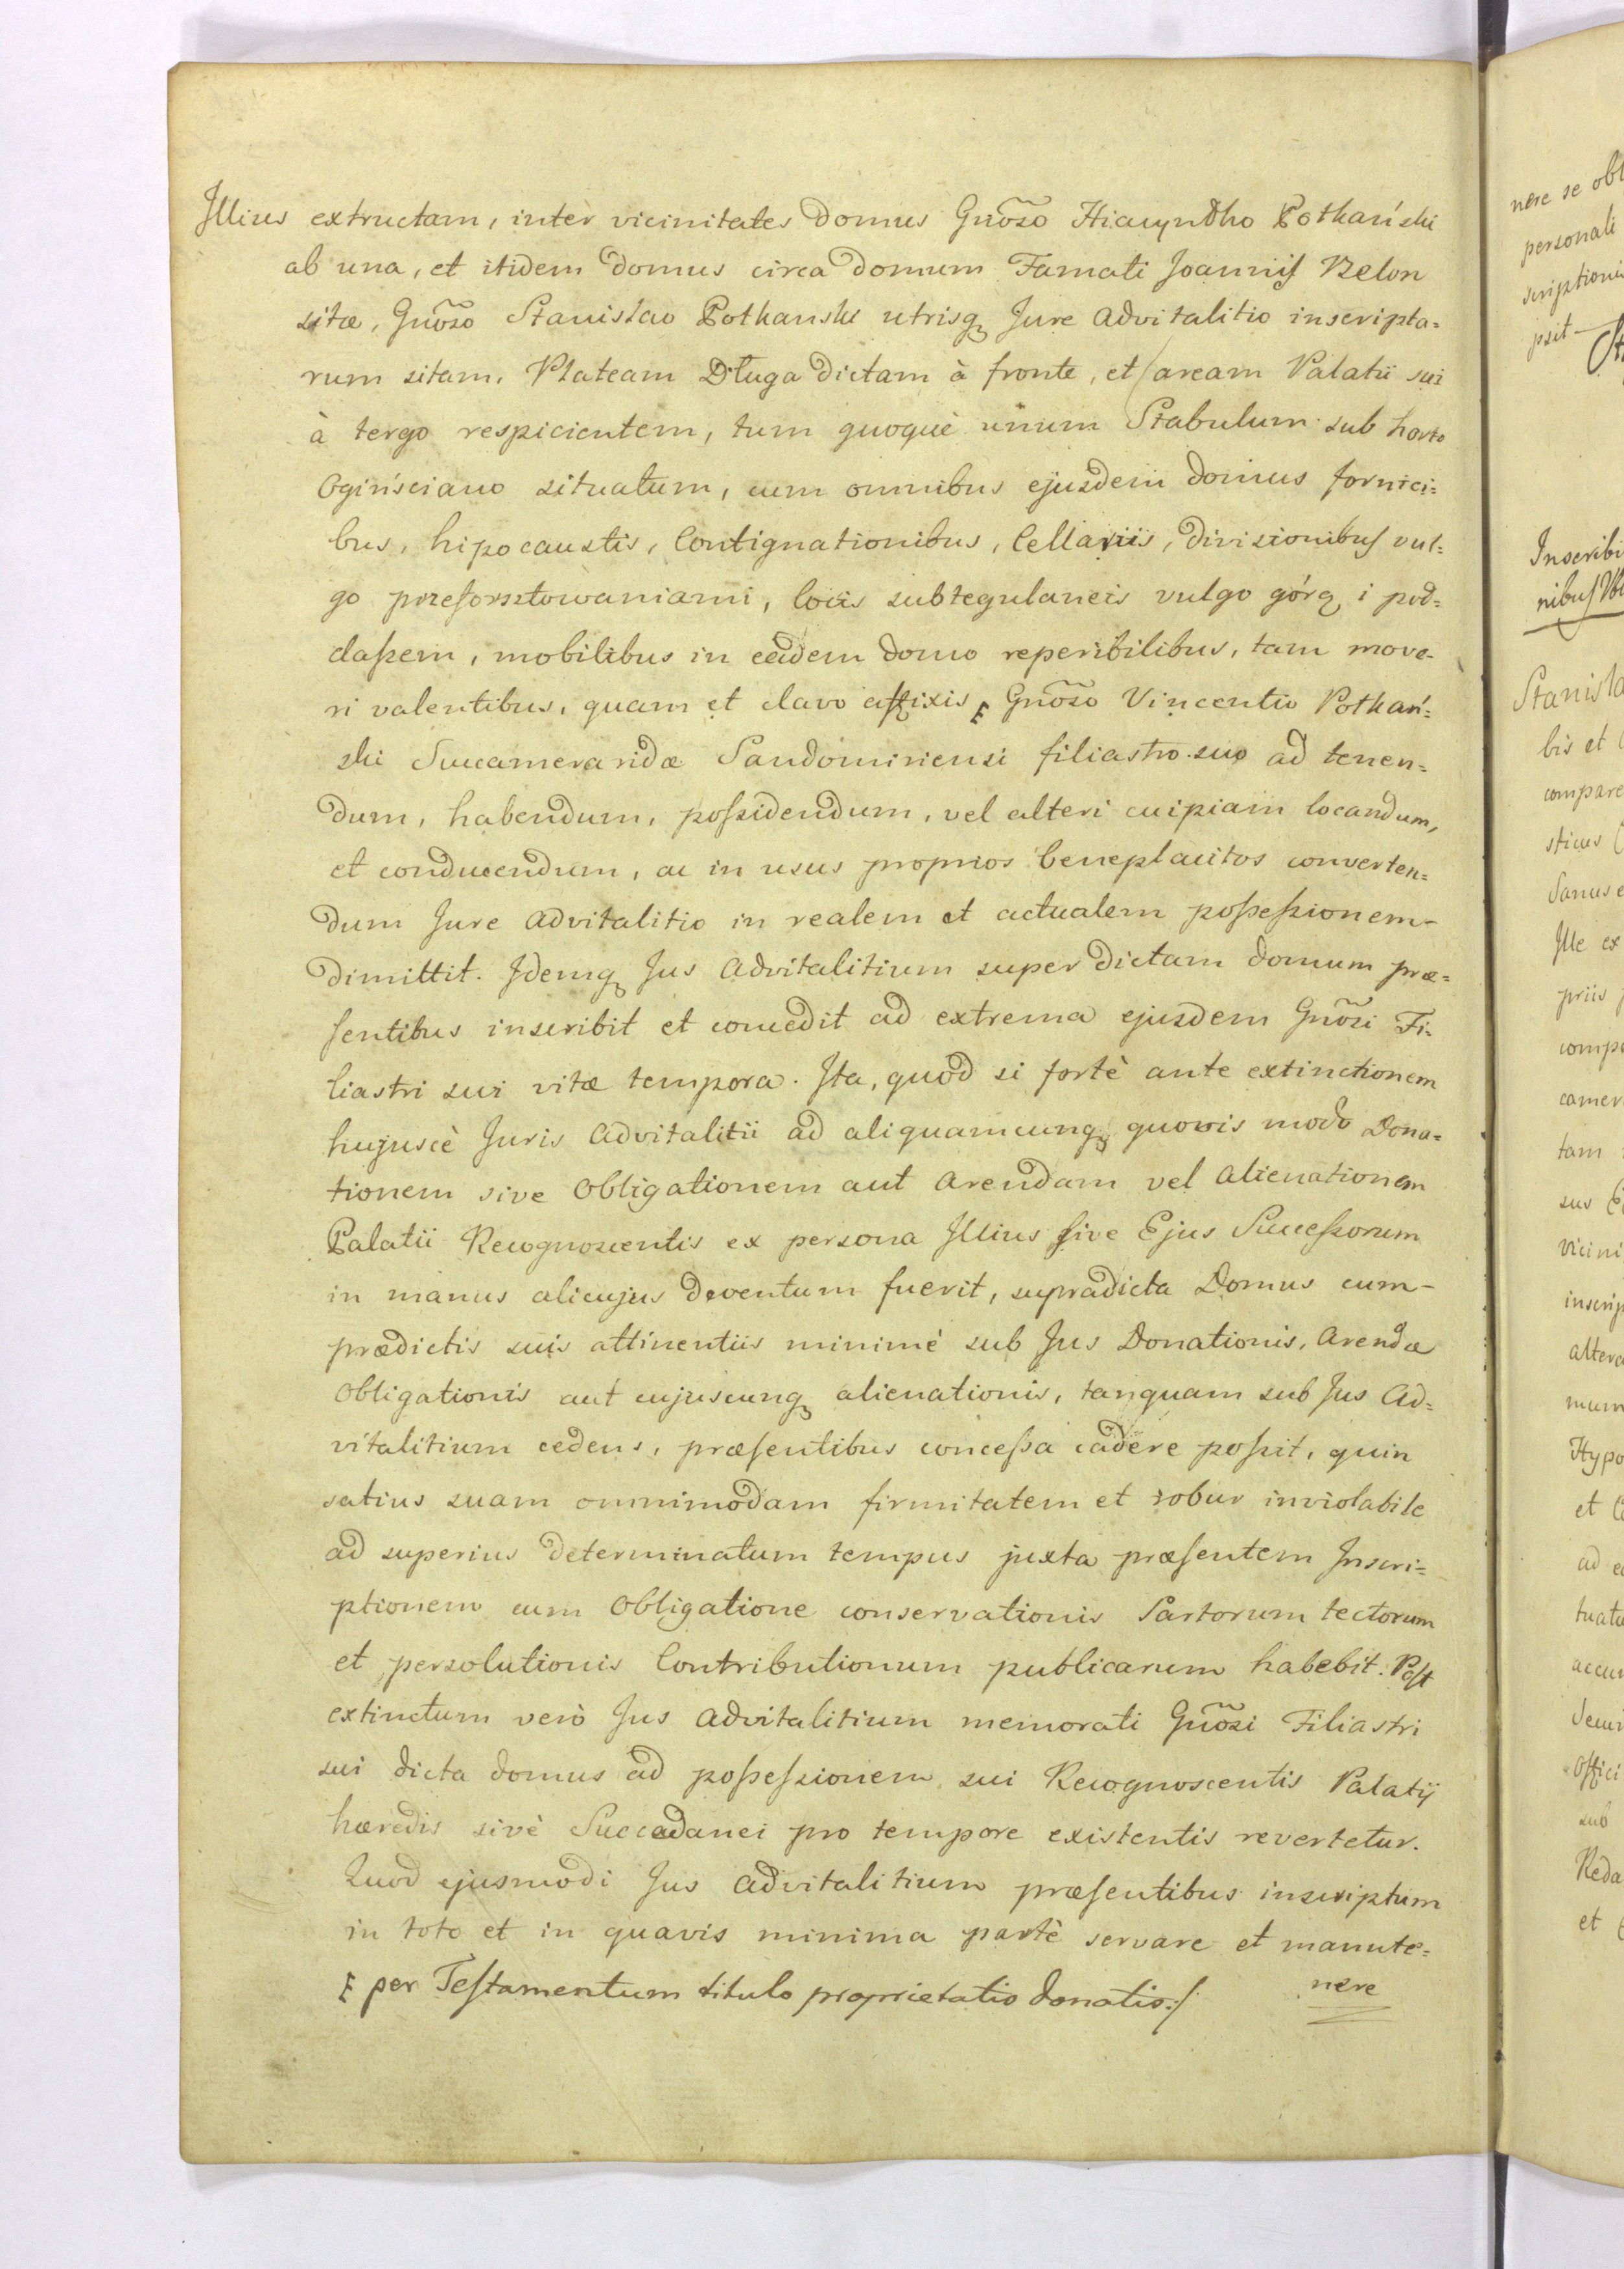 Illius extructam, inter vicinitates domus Gnõso Hiacyntho Potkański
ab una, et itidem domus circa domum Famati Joannis Belon
sitæ, Gnõso Stanislao Potkanski utrisq Jure advitalitio inscripta=
rum sitam, Plateam Długa dictam à fronte, et aream Palatii sui
à tergo respicientem, tum quoquè unum Stabulum sub horto
Ogińsciano situatum, cum omnibus ejusdem domus fornici=
bus, hipocaustis, Contignationibus, Cellariis, divisionibus vul=
go przeforsztowaniami, locis subtegulaneis vulgo górą i pod=
daszem, mobilibus in eadem domo reperibilibus, tam move=
ri valentibus, quam et clavo affixis ⁋ Gnõso Vincentio Potkań=
ski Succameraridæ Sandomiriensi filiastro suo ad tenen=
dum, habendum, possidendum, vel alteri cuipiam locandum,
et conducendum, ac in usus proprios beneplacitos converten=
dum Jure advitalitio in realem et actualem possessionem
dimittit. Idemq Jus advitalitium super dictam domum præ=
sentibus inscribit et concedit ad extrema ejusdem Gnõsi Fi=
liastri sui vitæ tempora. Ita, quod si fortè ante extinctionem
hujuscè Juris advitalitii ad aliquamcunq quovis modo Dona=
tionem sive Obligationem aut arendam vel alienationem
Palatii Recognoscentis ex persona Illius sive Ejus Successorum
in manus alicujus deventum fuerit, supradicta Domus cum
prædictis suis attinentiis minimè sub Jus Donationis, arendæ
Obligationis aut cujuscunq alienationis, tanquam sub Jus Ad=
vitalitium cedens, præsentibus concessa cadere possit, quin
satius suam omnimodam firmitatem et robur inviolabile
ad superius determinatum tempus juxta præsentem Inscri=
ptionem cum Obligatione conservationis Sartorum tectorum
et persolutionis Contributionum publicarum habebit. Post
extinctum verò Jus advitalitium memorati Gnõsi Filiastri
sui dicta domus ad possessionem sui Recognoscentis Palatij
hæredis sivè Succedanei pro tempore existentis revertetur.
Quod ejusmodi Jus advitalitium præsentibus inscriptum
in toto et in quavis minima partè servare et manute=
⁋ per Testamentum titulo proprietatis donatis:/ nere
nere se obl
personali
scriptioni
psit
Inscribi
nibus
Stanisla
bis et
compare
sticus
Sanus e
Ille ex
priis
compo
camer
tam
suo
vicini
inscrip
altera
mum
Hypo
et
ad
tuatu
accur
Offici
sub
Reda
et